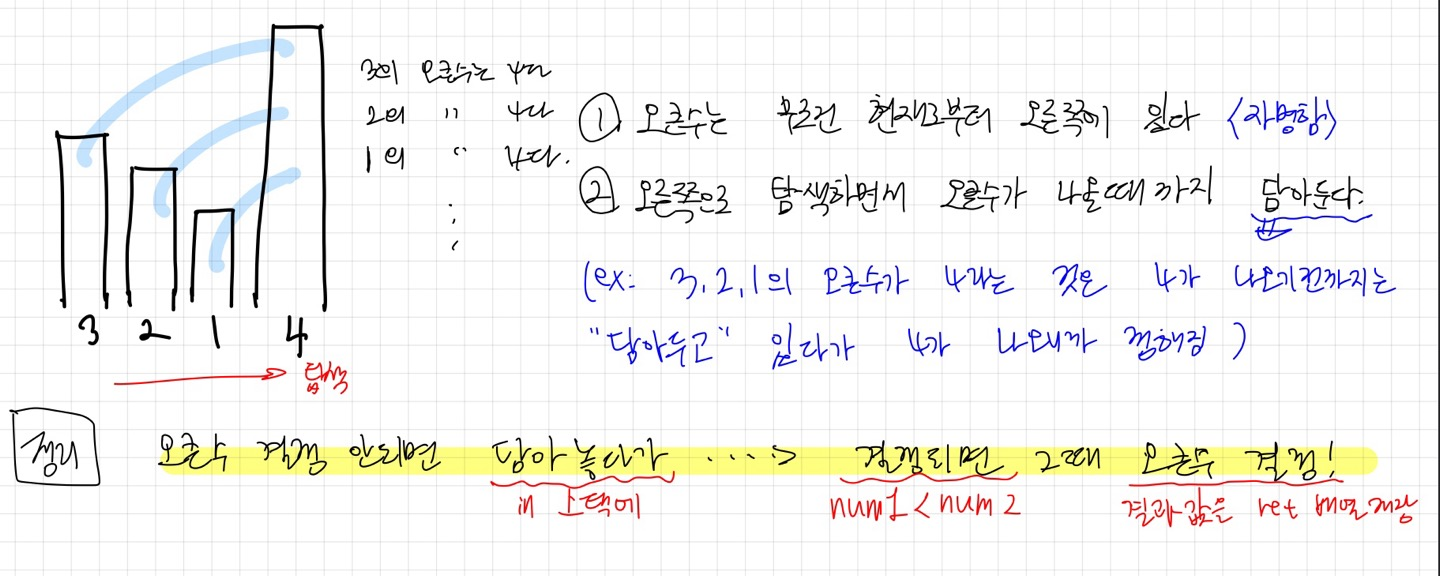 3의 오큰수는 4다
2의 〃 4다
1의 〃 4다.
① 오큰수는 무조건 현재로부터 오른쪽에 있다 <자명함>
② 오른쪽으로 탐색하면서 오큰수가 나올때까지 담아둔다.
(ex: 3, 2, 1의 오큰수가 4라는 것은 4가 나오기전까지는
"담아두고" 있다가 4가 나오니까 정해짐)
3 2 1 4
탐색
정리
오큰수 결정 안되면 담아놓다가 ····> 결정되면 그때 오큰수 결정!
in 스택에 num1 < num2 결과값을 ret 배열 저장